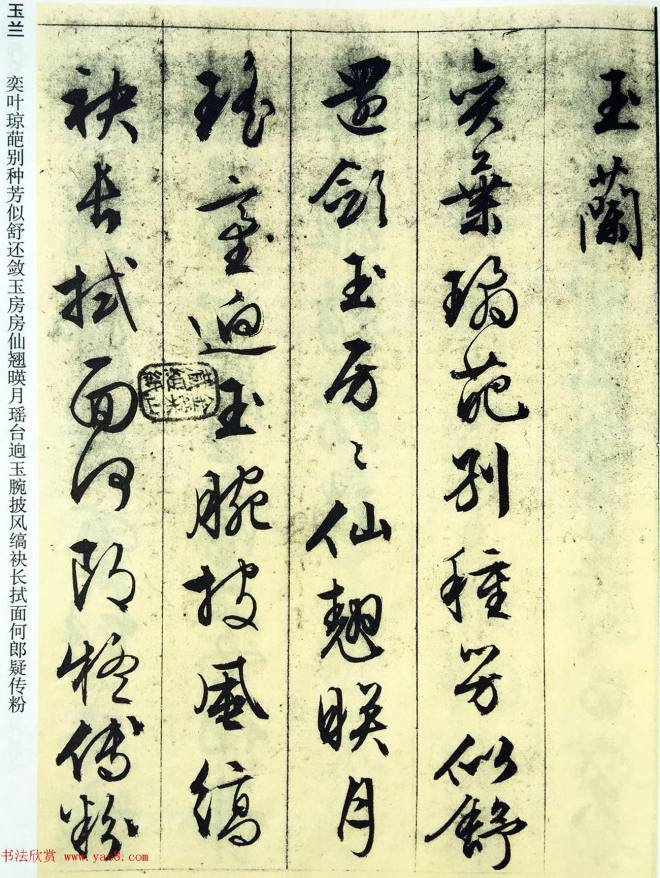 玉蘭
奕葉璚葩别種芳似舒
還斂玉房〻仙翹暎月
瑤臺逈玉腕披風縞
袂長拭面何郎疑傅粉
玉兰 奕叶琼葩别种芳似舒还敛玉房房仙翘暎月瑶台逈玉腕披风缟袂长拭面何郎疑传粉
书法欣赏 www.yac8.com